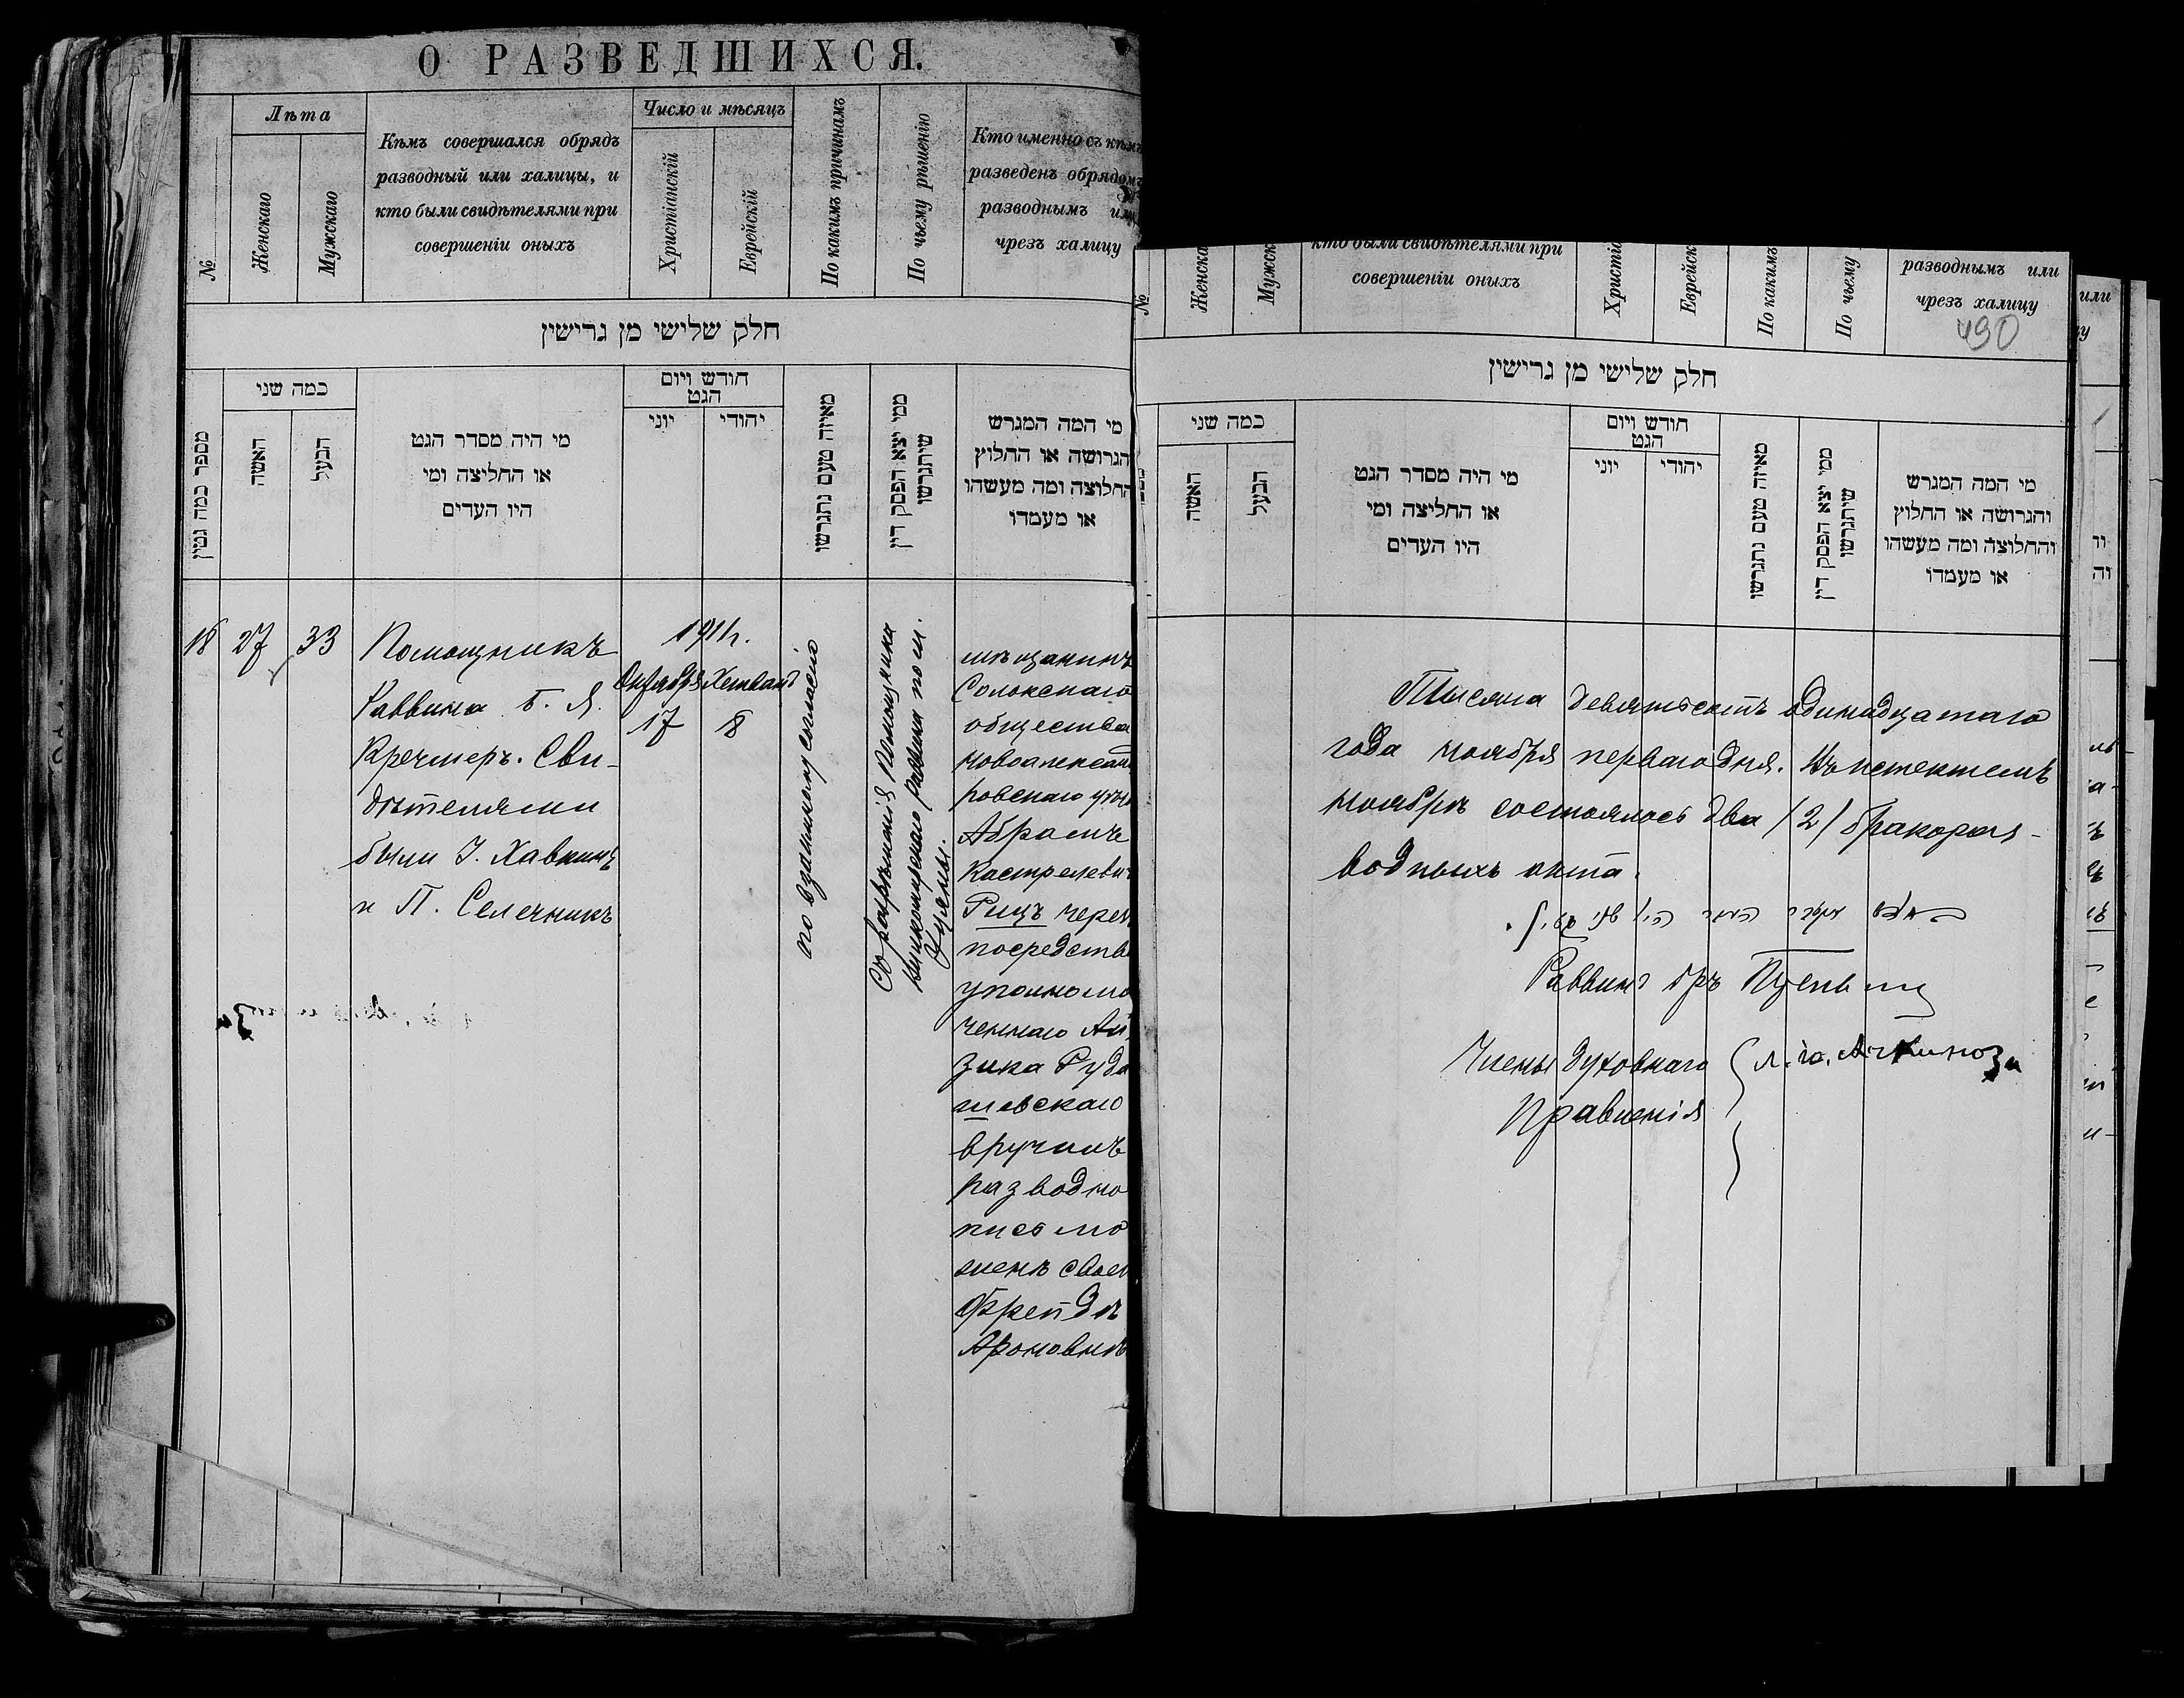 О РАЗВЕДШИХСЯ.
№
Лѣта
Женскаго
Мужскаго
Кѣмъ совершался обрядъ
разводный или халицы, и
кто были свидѣтелями при
совершеніи оныхъ
Число и мѣсяцъ
Христіанскій
Еврейскій
По какимъ причинамъ
По чьему рѣшенію
Кто именно съ кѣмъ
разведенъ обрядомъ
разводнымъ или
чрезъ халицу
חלק שלישי מן גרישין
מספר כמה גטין
כמה שני
האשה
הבעל
מי היה מסדר הגט
או החליצה ומי
היו העדים
חודש ויום
הגט
יוני
יהודי
מאיזה טעם נתגרשו
ממי יצא הפסק דין
שיתגרשו
מי המה המגרש
הגרושה או החלוץ
החלוצה ומה מעשהו
או מעמדו
18
27
33
Помощникъ
Раввина Б. Я.
Кречмеръ. Сви-
дѣтелями
были І. Хавкинъ
и П. Селечникъ
1911г.
Октября Хешванъ
17 8
по взаимному согласію
Съ разрѣшенія Помощника
Вилкомірскаго раввина по м.
Уцяны.
мѣщанинъ
Солокскаго
общества
Новоалексан
ровскаго уѣз
Абрамъ
Кастрелевич
Рицъ черезъ
посредств
уполномо
ченнаго Ай
зика Руда
шевскаго
вручилъ
разводно
письмо
женѣ своей
Фрейдѣ
Ароновнѣ
№
Женска
Мужск
кто были свидѣтелями при
совершеніи оныхъ
Христіа
Еврейск
По какимъ
По чьему
разводнымъ или
чрезъ халицу
490
חלק שלישי מן גרישין
כמה שני
האשה
הבעל
מי היה מסדר הגט
או החליצה ומי
היו העדים
חודש ויום
הגט
יוני
יהודי
מאיזה טעם נתגרשו
ממי יצא הפסק דין
שיתגרשו
מי המה המגרש
והגרושה או החלוץ
והחלוצה ומה מעשהו
או מעמדו
Тысяча девятьсотъ одинадцатаго
года ноября перваго дня. Въ истекшемъ
ноябрѣ состоялось два /2/ бракораз-
водныхъ акта.
Раввинъ
Члены Духовнаго
Правленія
или